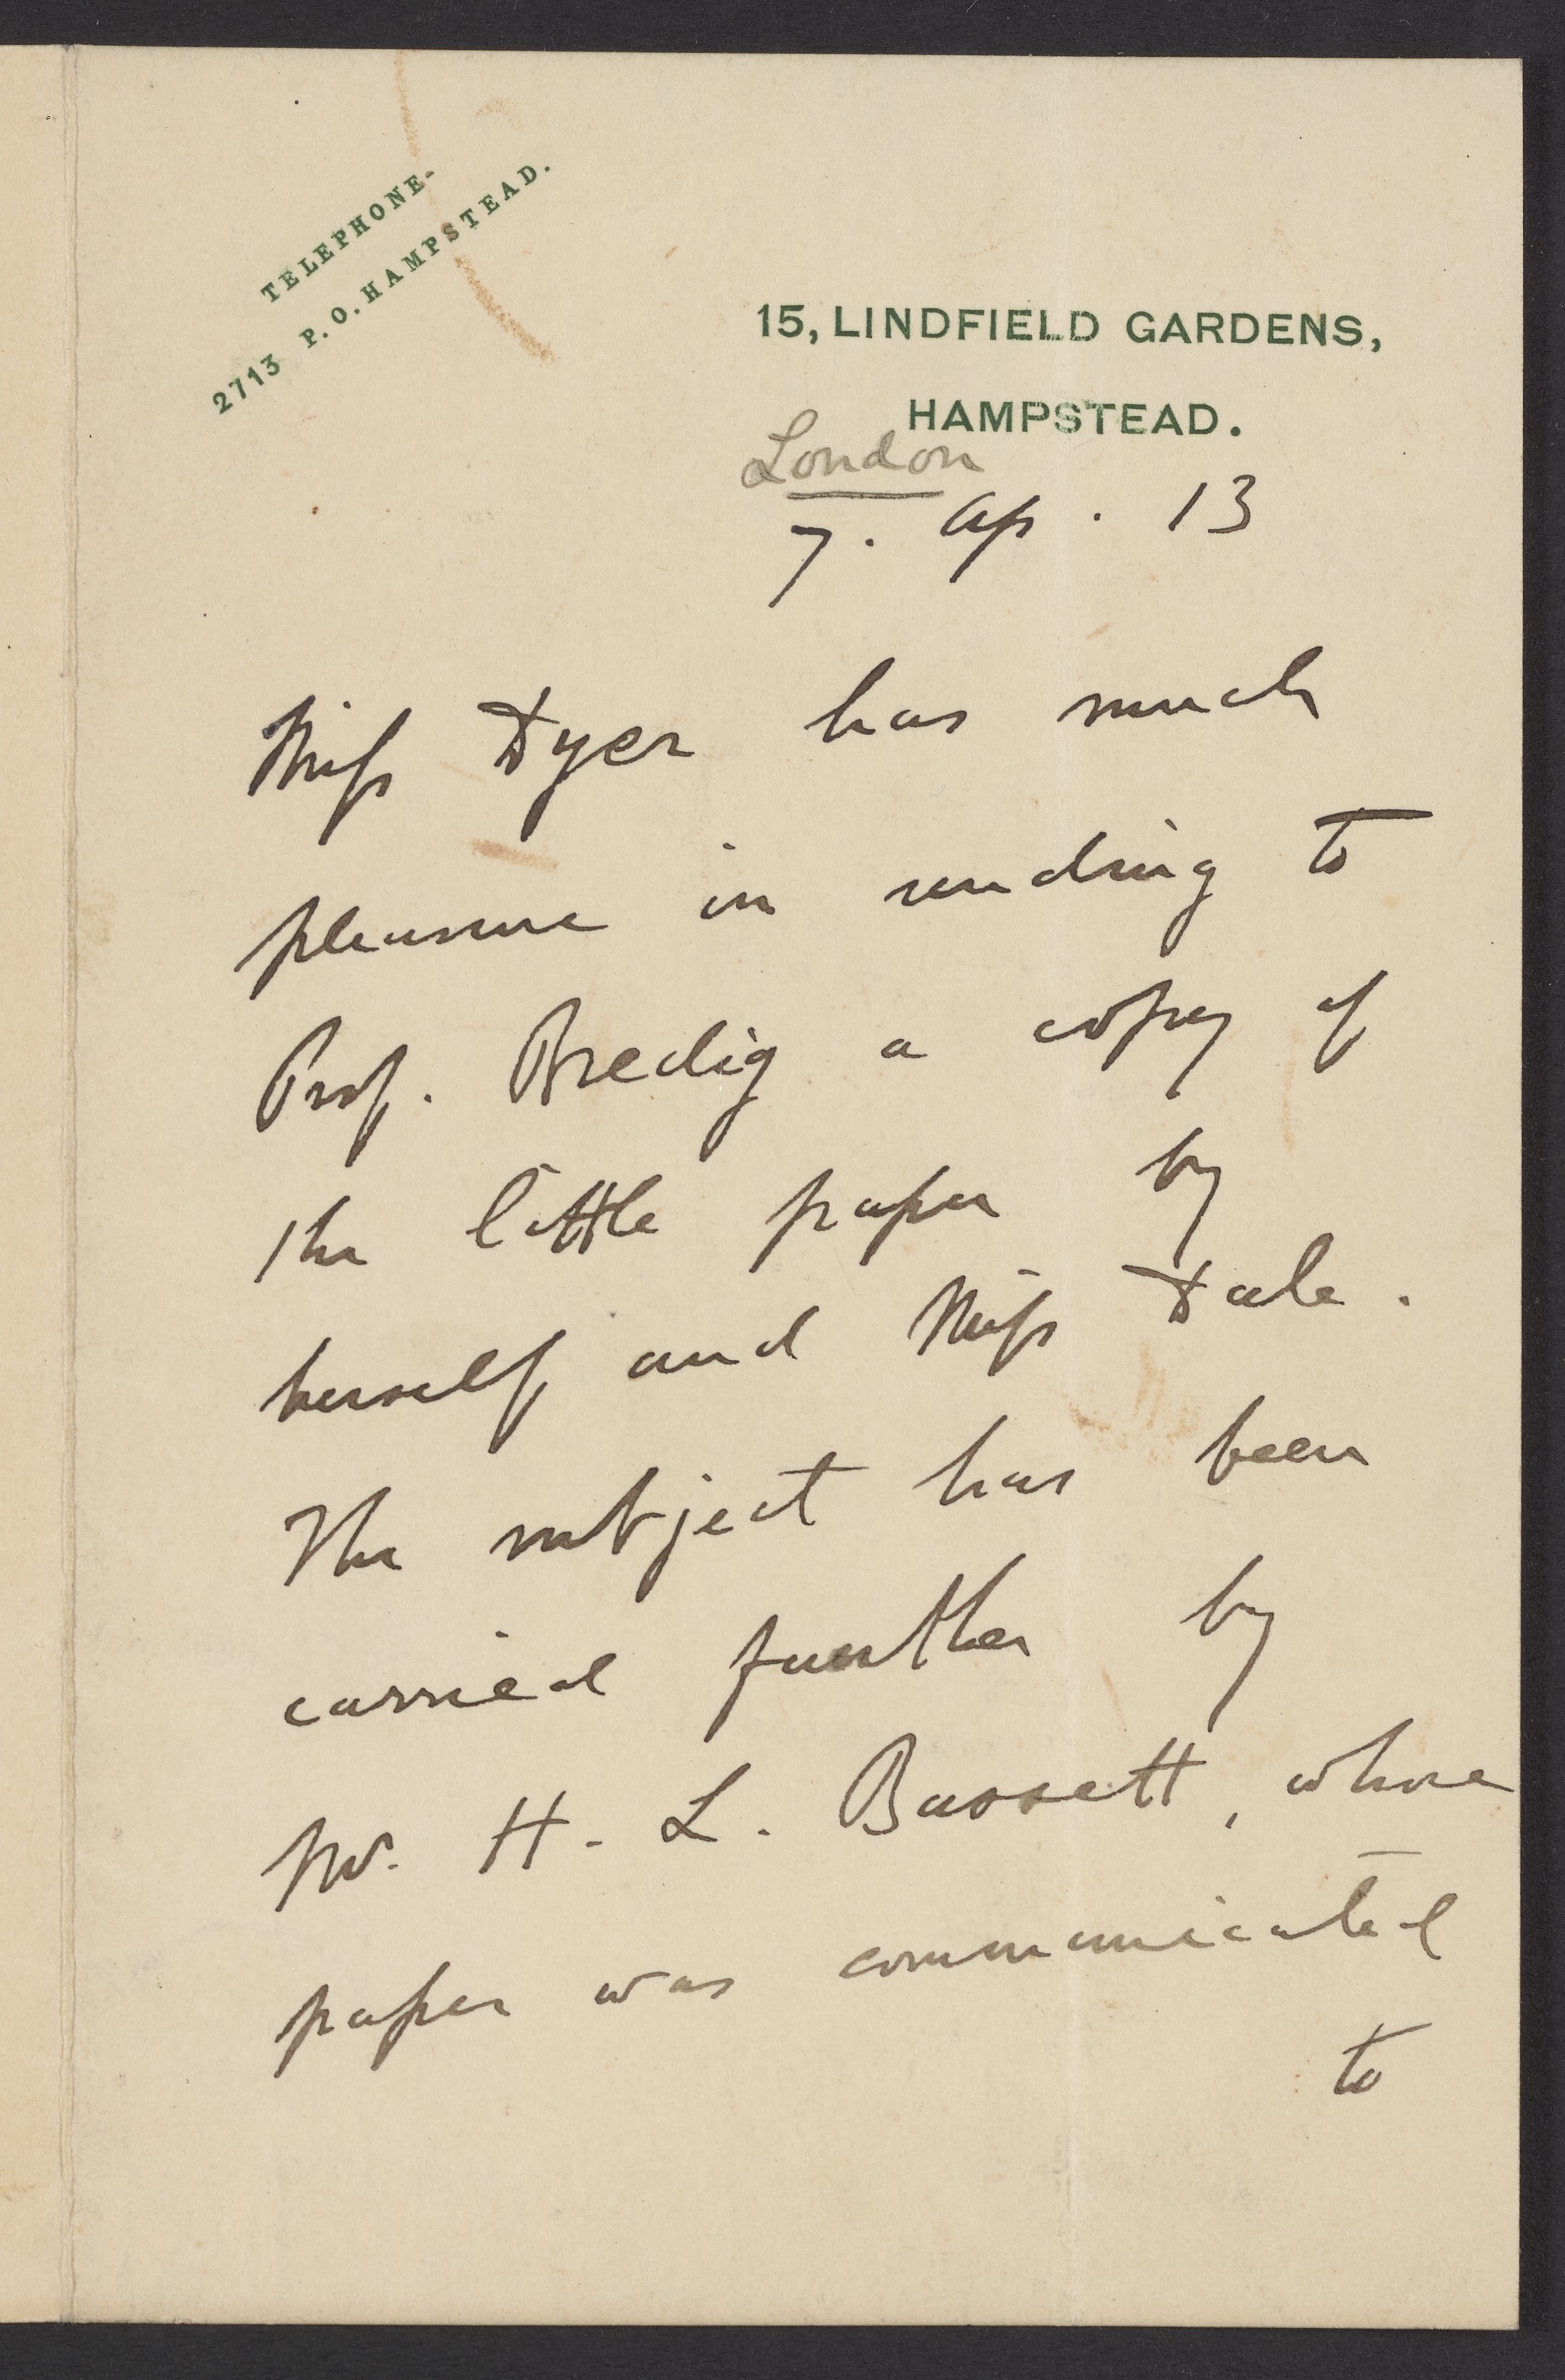 TELEPHONE-
2713 P.O. HAMPSTEAD.
15, LINDFIELD GARDENS,
HAMPSTEAD.
London
7. Ap. 13
Miss Dyer has much
pleasure in sending to
Prof. Bredig a copy of
the little paper by
herself and Miss Dale.
The subject has been
carried further by
Mr. H. L. Bassett, whose
paper was communicated
to